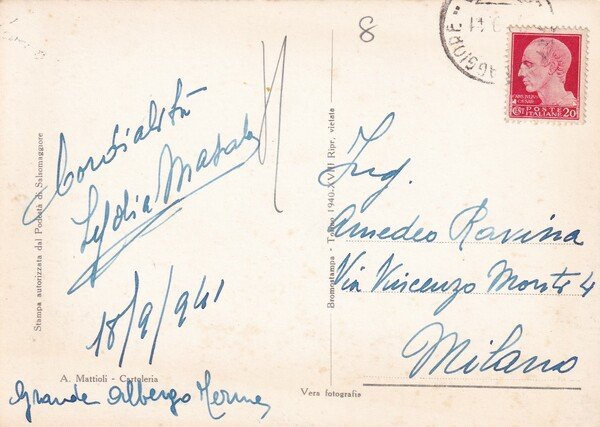 8
Cordialità
18/9/941
Grande Albergo Terme
A. Mattioli - Cartoleria
Stampa autorizzata dal Podestà di Salsomaggiore
Bromostampa - Torino 1940-XVIII Ripr. vietata
Vera fotografia
POSTE
ITALIANE
CENT 20
Ing.
Amedeo Ravina
Via Vincenzo Monti 4
Milano